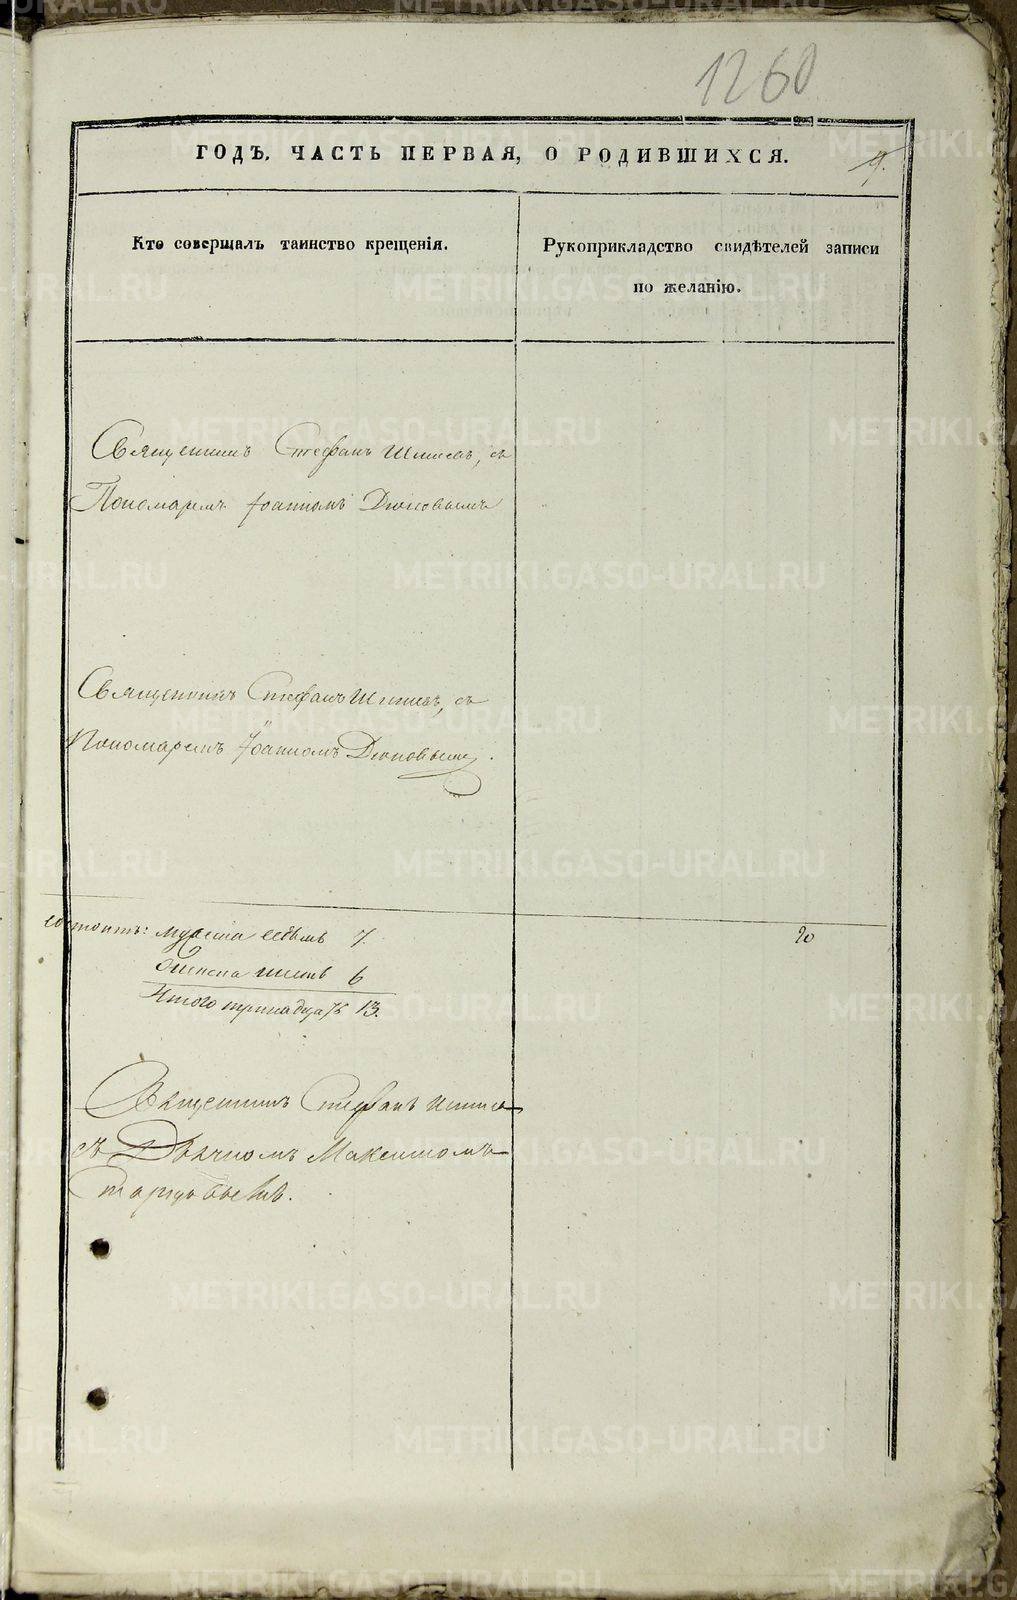 1260
ГОДЪ. ЧАСТЬ ПЕРВАЯ, О РОДИВШИХСЯ.
9.
Кто совершалъ таинство крещенія.
Рукоприкладство свидѣтелей записи
по желанію.
Священникъ Стефанъ съ
Пономаремъ Іоанномъ
Священникъ Стефанъ съ
Пономаремъ Іоанномъ
состоитъ: мужеска седмь 7.
женска шесть 6
Итого тринадцать 13.
Священникъ Стефанъ
съ Дьячкомъ Максимомъ
METRIKI.GASO-URAL.RU